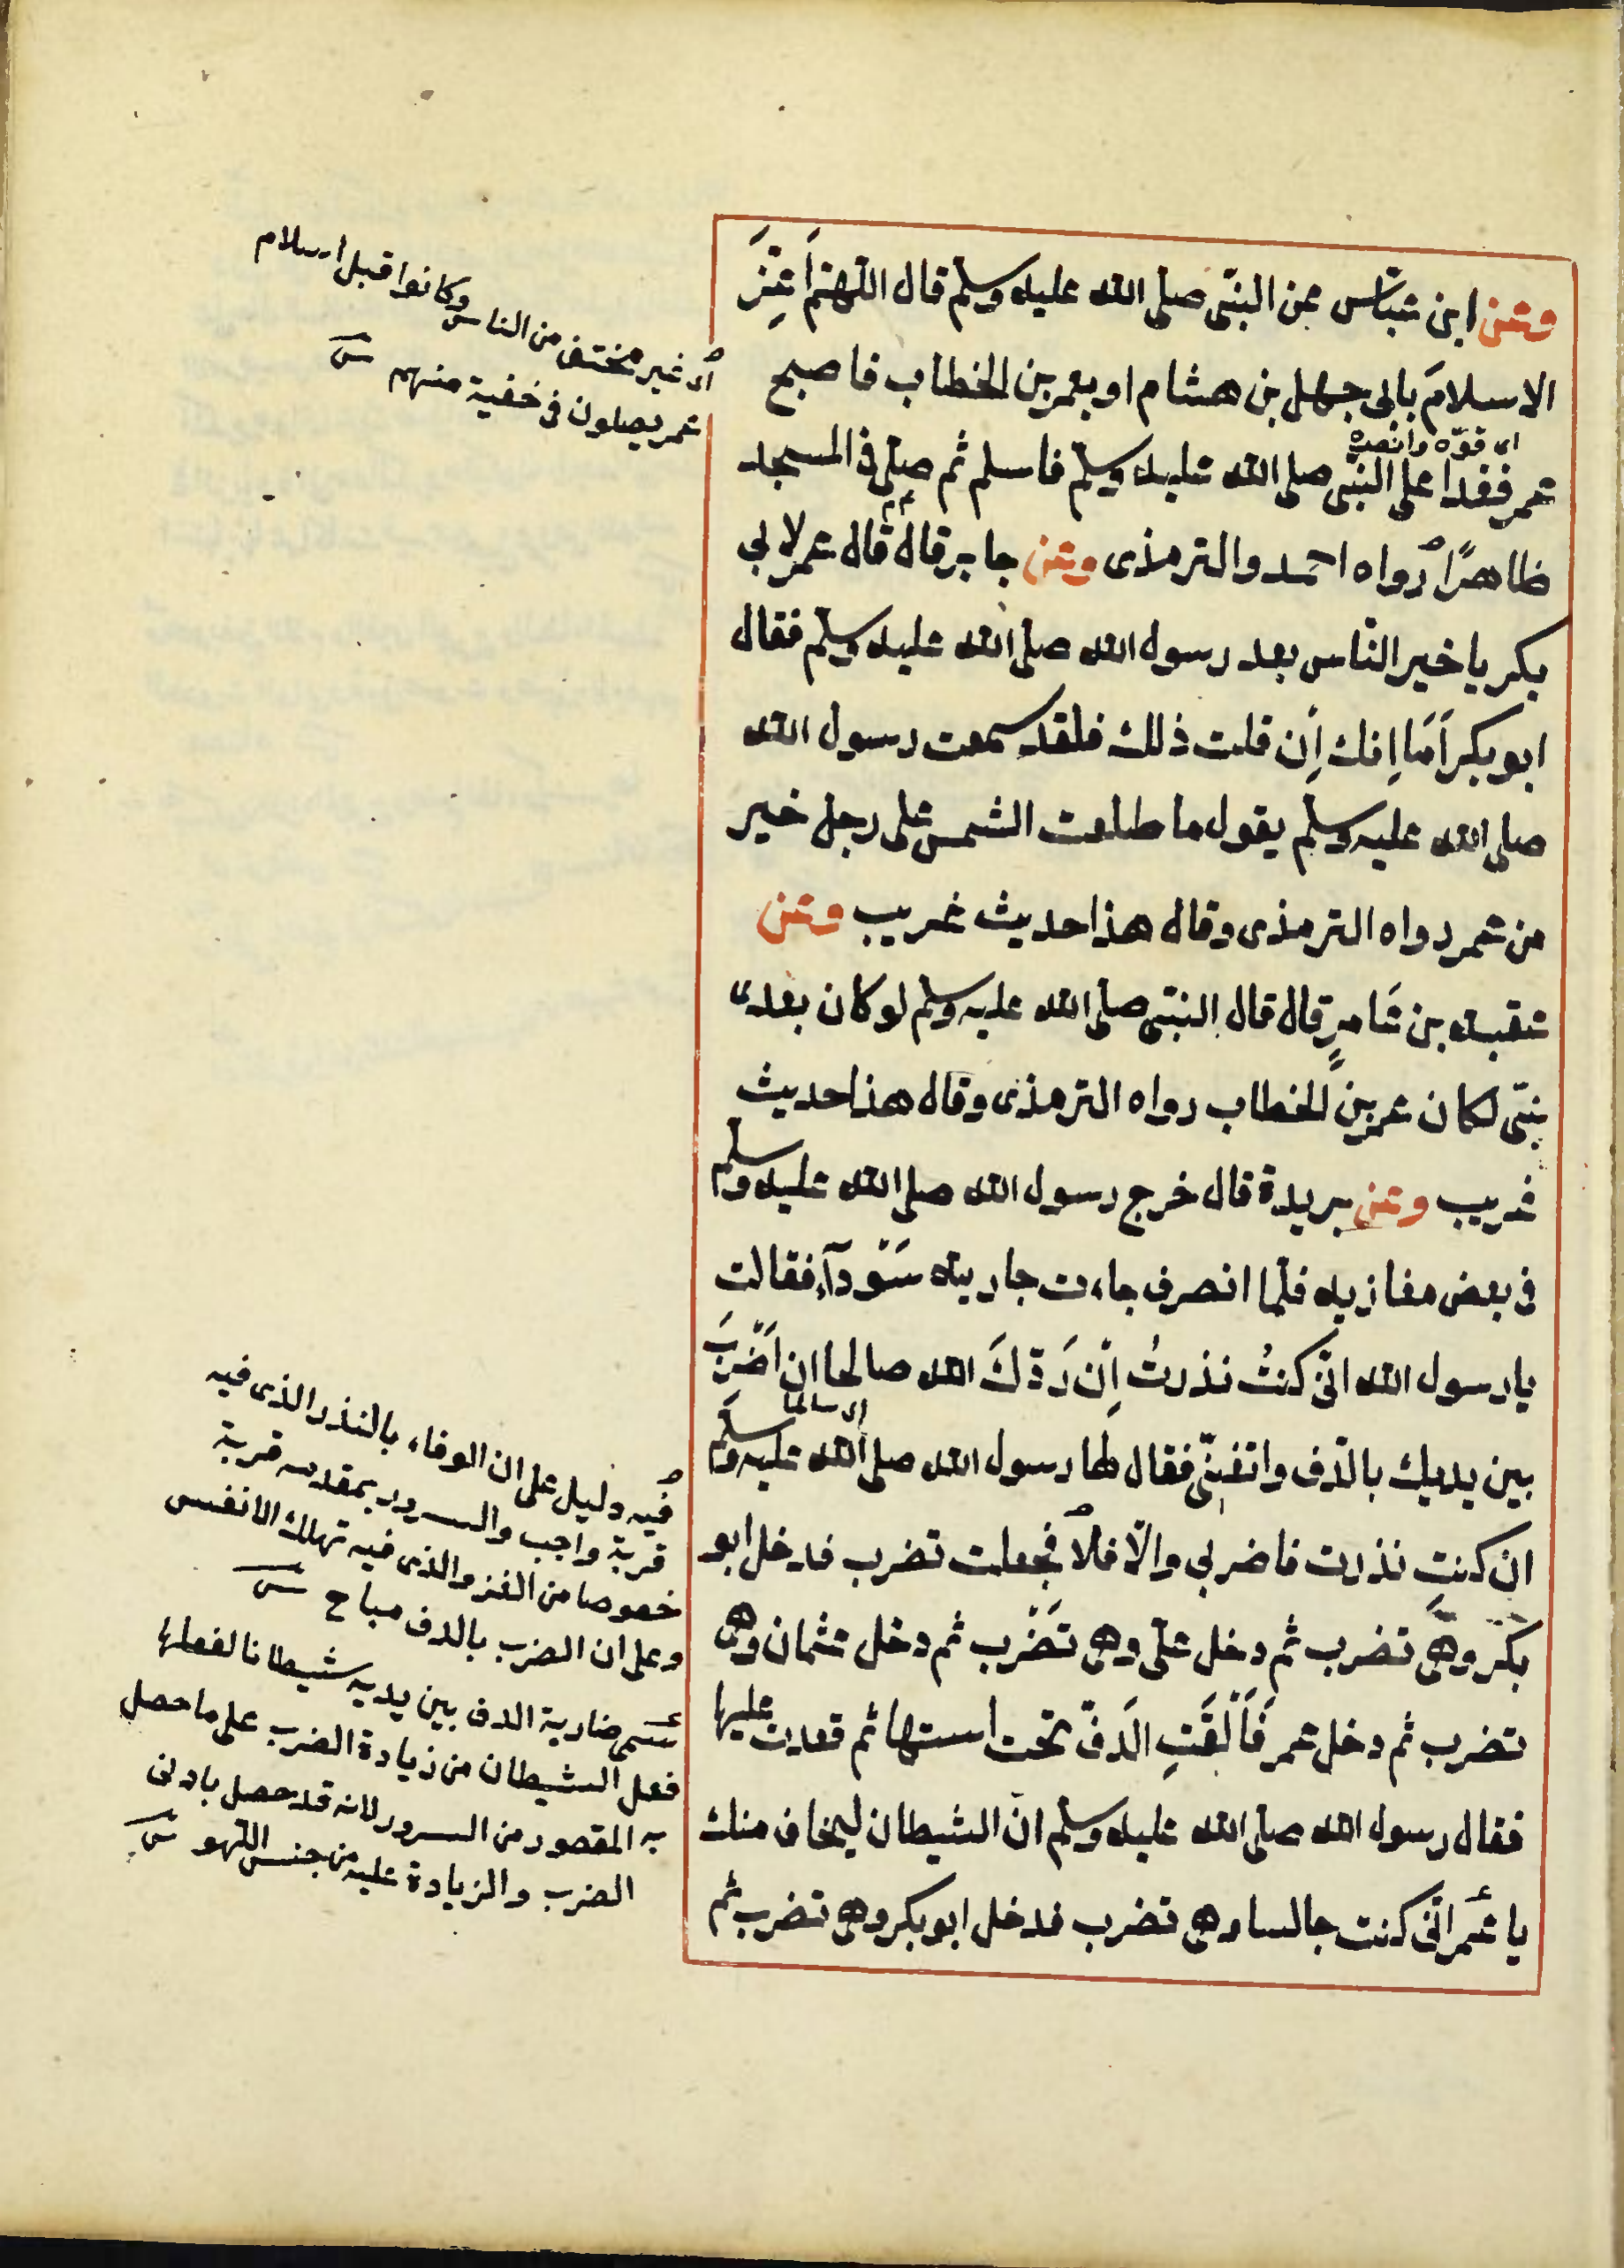 وعن ابن عبّاس عن النبّى صلى الله عليه وسلم قال اللهمّ اَعِزَّ
الاسلامَ بابى جهل بن هشام او بعمر بن الخطاب فاصبح
اى قوّه وانصره
عمر فغدا على النبّى صلى الله عليه وسلم فاسلم ثم صلى فى المسجد
ظاهرًا رواه احمد والترمذى وعن جابر قال قال عمر لابى
بكر يا خير الناس بعد رسول الله صلى الله عليه وسلم فقال
ابو بكر اَمَا اِنك اِن قلت ذلك فلقد سمعت رسول الله
صلى الله عليه وسلم يقول ما طلعت الشمس على رجل خير
من عمر رواه الترمذى وقال هذا حديث غريب وعن
عقبه بن عَامرٍ قال قال النبّى صلى الله عليه وسلم لو كان بعدى
نبّى لكان عمر بن الخطاب رواه الترمذى وقال هذا حديث
غريب وعن بريدة قال خرج رسول الله صلى الله عليه وسلم
فى بعض مغازيه فلّما انصرف جاءت جاريته سَوْدآء فقالت
يا رسول الله انّى كنتُ نذرتُ اِن رَدّكَ الله صالحا ان اَضْرِبَ
اى سالما
بين يديك بالدّف واتغنّى فقال لها رسول الله صلى الله عليه وسلم
ان كنتِ نذرت فاضربى والّا فلا فجعلت تضرب فدخل ابو
بكر وهى تضرب ثم دخل علّى وهى تَضْرب ثم دخل عثمان وهى
تضرب ثم دخل عمر فَاَلْقَتِ الدَفّ تحت استها ثم قعدت عليها
فقال رسول الله صلى الله عليه وسلم انّ الشيطان ليخاف منك
يا عمر انّى كنت جالسا وهى تضرب فدخل ابو بكر وهى تضرب ثم
اى غير مختف من الناس وكانوا قبل اسلام
عمر يصلون فى خفية منهم
فيه دليل على ان الوفاء بالنذر الذى فيه
قربة واجب والسرور بمقدمه قربة
خصوصا من الغزو الذى فيه تهلك الانفس
وعلى ان الضرب بالدف مباح
سمى ضاربة الدف بين يديه شيطانا لفعلها
فعل الشيطان من زيادة الضرب على ما حصل
به المقصور من السرور لانه قد حصل بادنى
الضرب والزيادة عليه من جنس اللهو